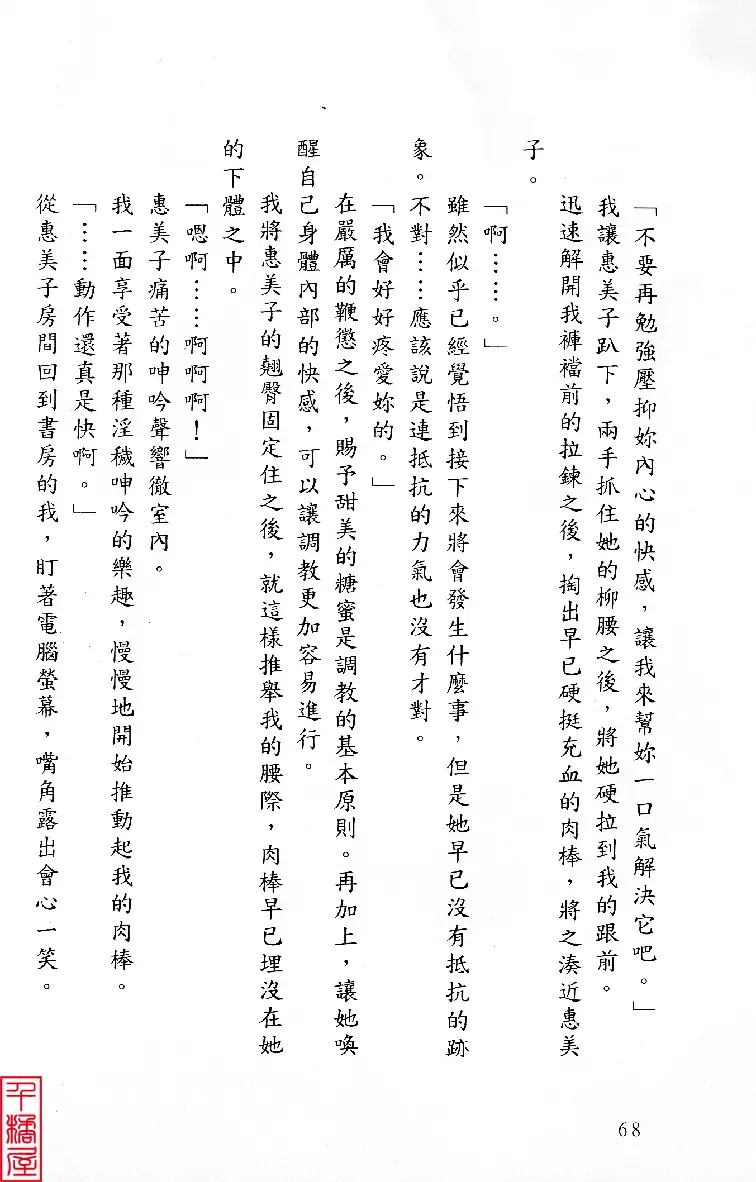 「不要再勉強壓抑妳內心的快感，讓我來幫妳一口氣解決它吧。」
我讓惠美子趴下，兩手抓住她的柳腰之後，將她硬拉到我的跟前。
迅速解開我褲襠前的拉鍊之後，掏出早已硬挺充血的肉棒，將之湊近惠美
子。
「啊……。」
雖然似乎已經覺悟到接下來將會發生什麼事，但是她早已沒有抵抗的跡
象。不對……應該說是連抵抗的力氣也沒有才對。
「我會好好疼愛妳的。」
在嚴厲的鞭懲之後，賜予甜美的糖蜜是調教的基本原則。再加上，讓她喚
醒自己身體內部的快感，可以讓調教更加容易進行。
我將惠美子的翹臀固定住之後，就這樣推舉我的腰際，肉棒早已埋沒在她
的下體之中。
「嗯啊……啊啊啊！」
惠美子痛苦的呻吟聲響徹室內。
我一面享受著那種淫穢呻吟的樂趣，慢慢地開始推動起我的肉棒。
「……動作還真是快啊。」
從惠美子房間回到書房的我，盯著電腦螢幕，嘴角露出會心一笑。
68